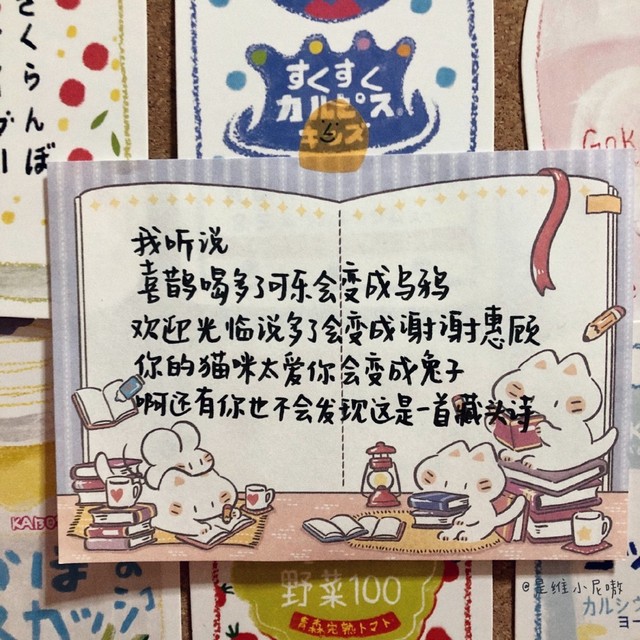 さくらんぼ
すくすく
カルピス
キッズ
GOK
我听说
喜鹊喝多了可乐会变成乌鸦
欢迎光临说多了会变成谢谢惠顾
你的猫咪太爱你会变成兔子
啊还有你也不会发现这是一首藏头诗
野菜100
青森完熟トマト
@是维小尼嗷
カルシウ